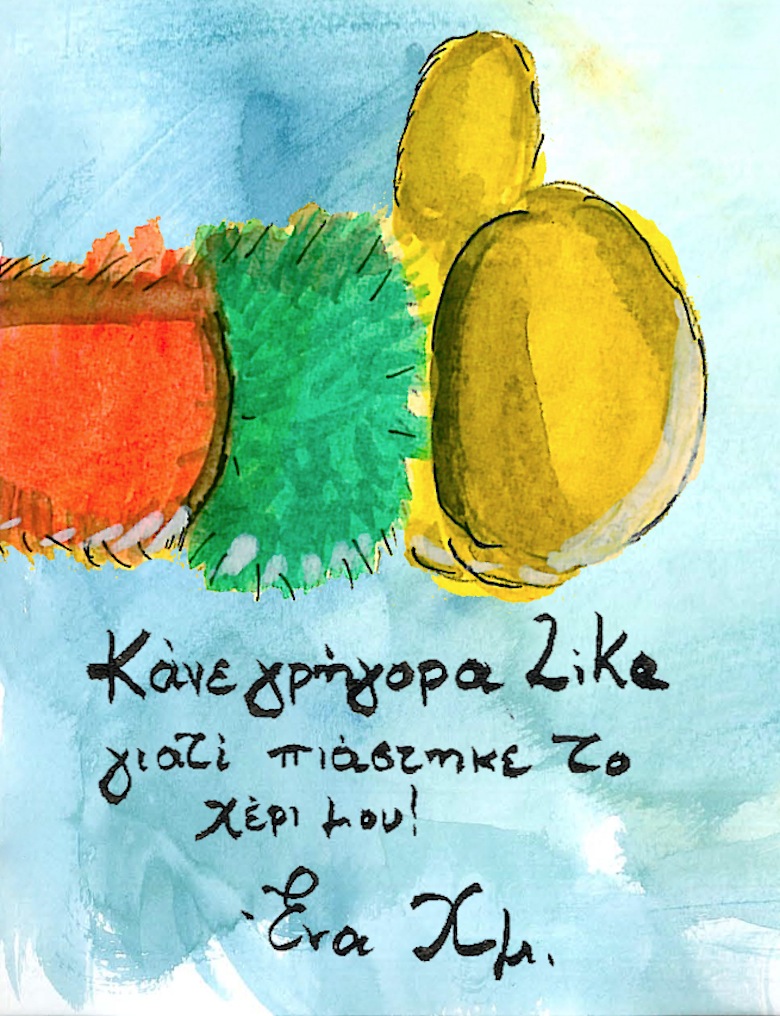 Κάνε γρήγορα Like
γιατί πιάστηκε το
χέρι μου!
Ένα Χμ.